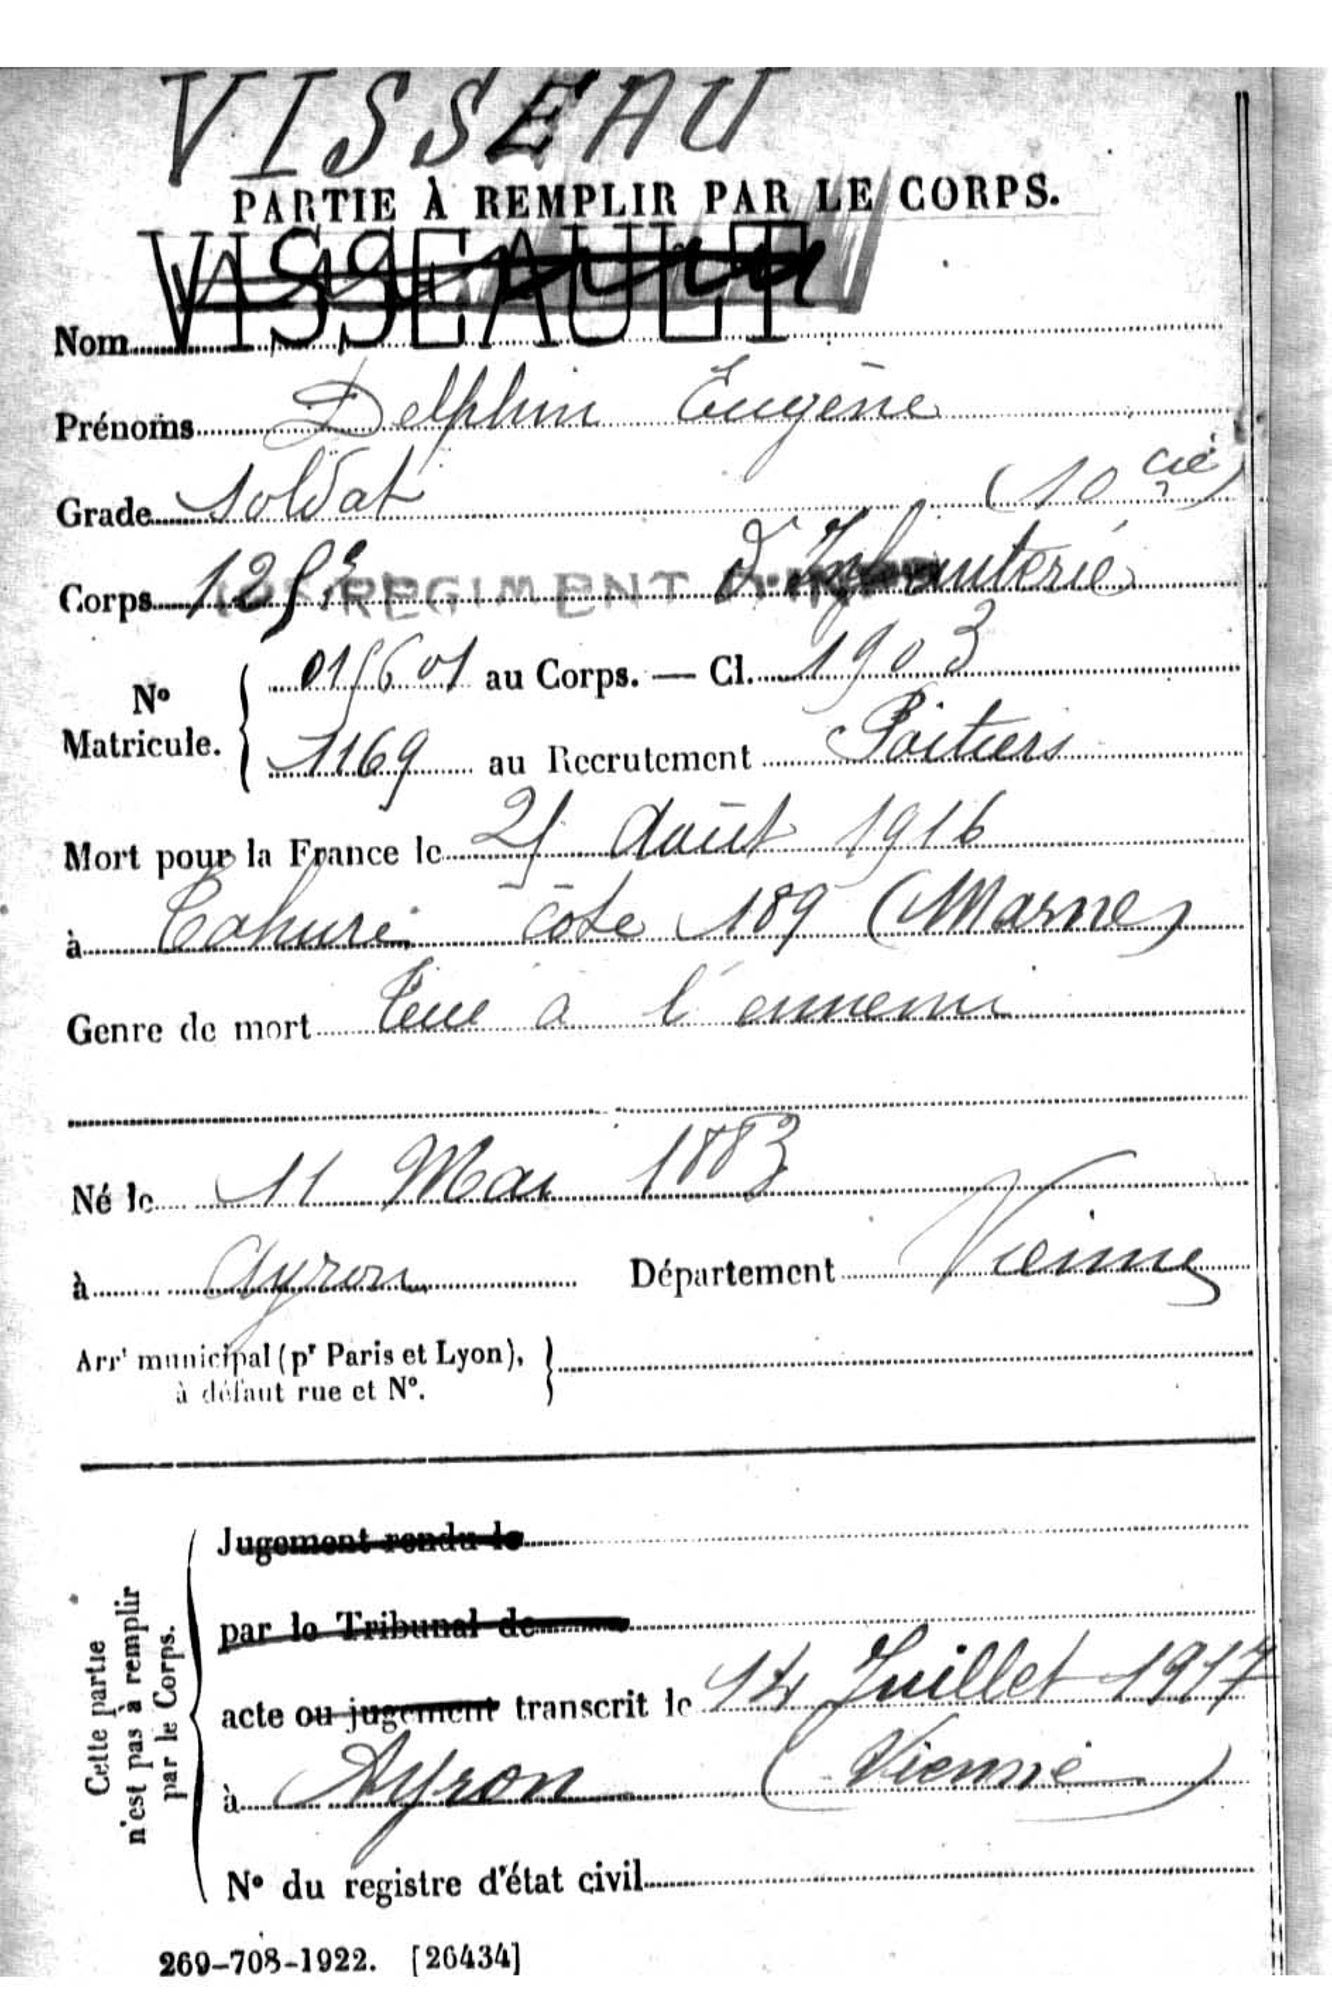 VISSEAU
PARTIE À REMPLIR PAR LE CORPS.
Nom VISSEAULT
Prénoms Delphin Eugène
Grade Soldat (10e Cie)
Corps 125e RÉGIMENT D' d'Infanterie
No Matricule. { 015601 au Corps. — Cl. 1903
1169 au Recrutement Poitiers
Mort pour la France le 25 Août 1916
à Tahure côte 189 (Marne)
Genre de mort Tué à l'ennemi
Né le 11 Mai 1883
à Ayron Département Vienne
Arrt municipal (pr Paris et Lyon),
à défaut rue et No.
Cette partie
n'est pas à remplir
par le Corps.
Jugement rendu le
par le Tribunal de
acte ou jugement transcrit le 14 Juillet 1917
à Ayron (Vienne)
No du registre d'état civil
269-708-1922. [26434]